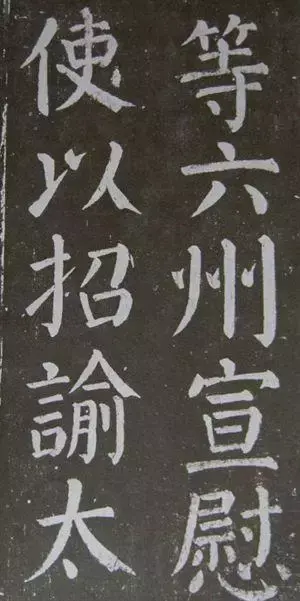 等六州宣慰
使以招諭太